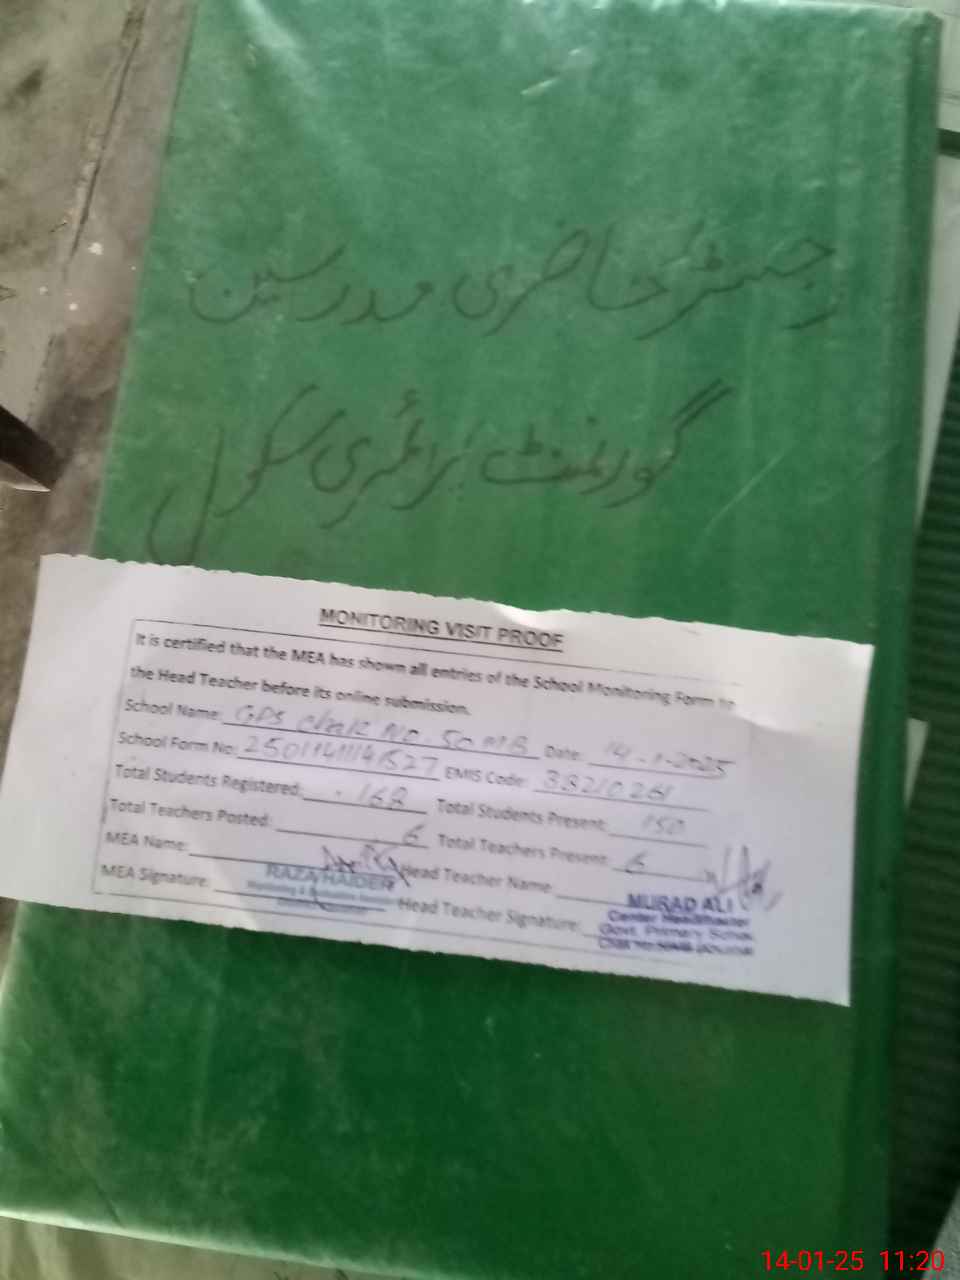 رجسٹر حاضری مدرسین
گورنمنٹ پرائمری سکول
MONITORING VISIT PROOF
It is certified that the MEA has shown all entries of the School Monitoring Form to
the Head Teacher before its online submission.
School Name: GPS Chak No. 50 MB Date: 14-1-2025
School Form No: EMIS Code: 38210261
Total Students Registered: 168 Total Students Present: 150
Total Teachers Posted: 6 Total Teachers Present: 6
MEA Name: Head Teacher Name:
RAZA HAIDER
MURAD ALI
MEA Signature: Head Teacher Signature:
Center Headmaster
Govt. Primary School
14-01-25 11:20